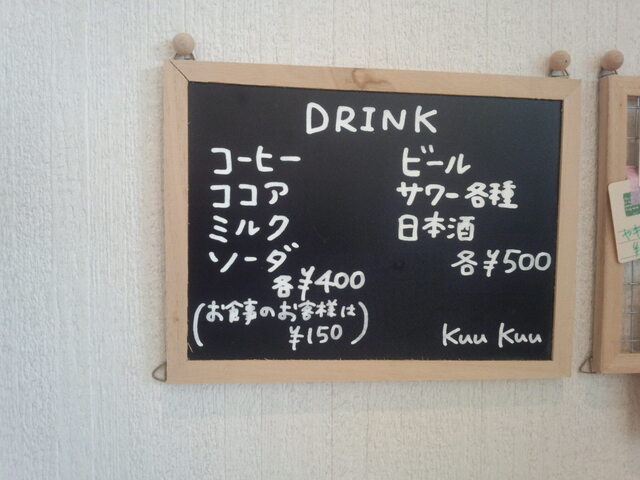 DRINK
コーヒー
ココア
ミルク
ソーダ
各¥400
(お食事のお客様は
¥150)
ビール
サワー各種
日本酒
各¥500
Kuu Kuu